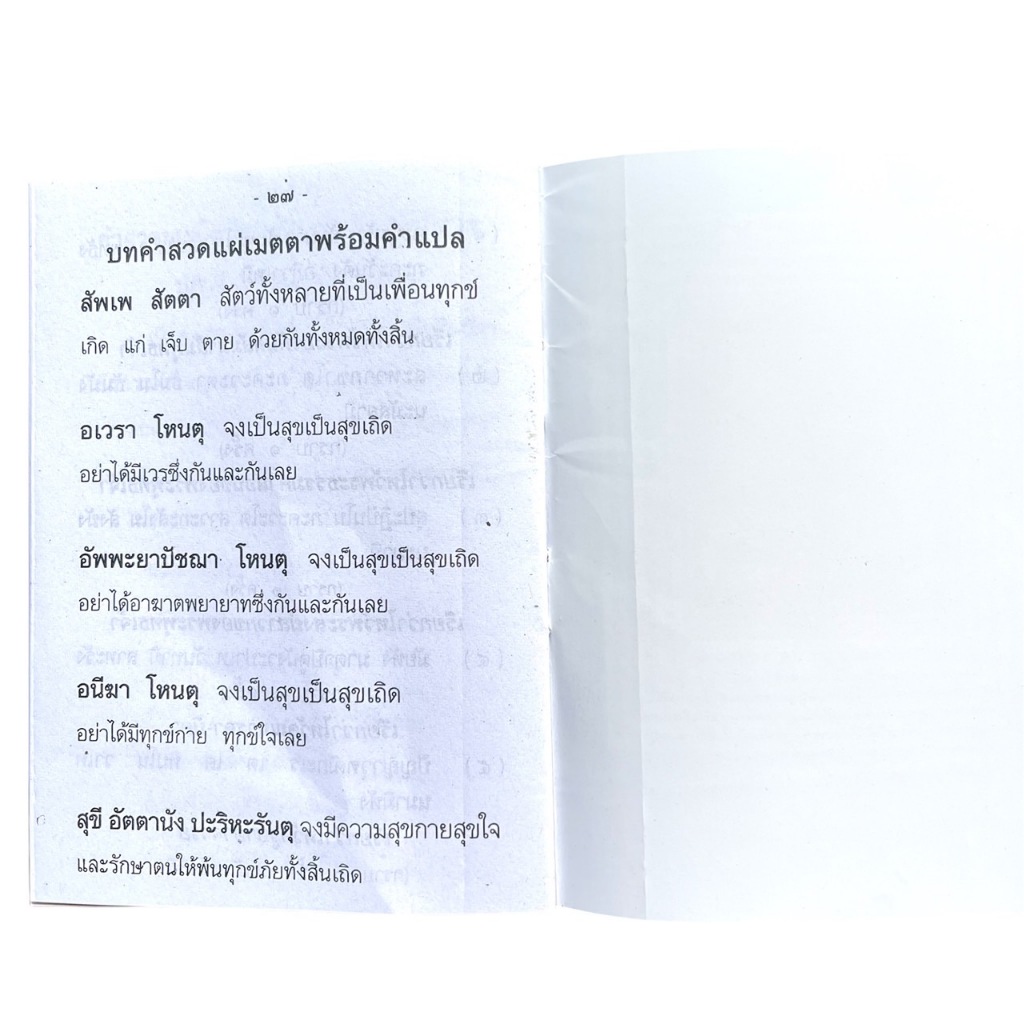 - ๒๗ -
บทคำสวดแผ่เมตตาพร้อมคำแปล
สัพเพ สัตตา สัตว์ทั้งหลายที่เป็นเพื่อนทุกข์
เกิด แก่ เจ็บ ตาย ด้วยกันทั้งหมดทั้งสิ้น
อเวรา โหนตุ จงเป็นสุขเป็นสุขเถิด
อย่าได้มีเวรซึ่งกันและกันเลย
อัพพะยาปัชฌา โหนตุ จงเป็นสุขเป็นสุขเถิด
อย่าได้อาฆาตพยายาทซึ่งกันและกันเลย
อนีฆา โหนตุ จงเป็นสุขเป็นสุขเถิด
อย่าได้มีทุกข์กาย ทุกข์ใจเลย
สุขี อัตตานัง ปะริหะรันตุ จงมีความสุขกายสุขใจ
และรักษาตนให้พ้นทุกข์ภัยทั้งสิ้นเถิด